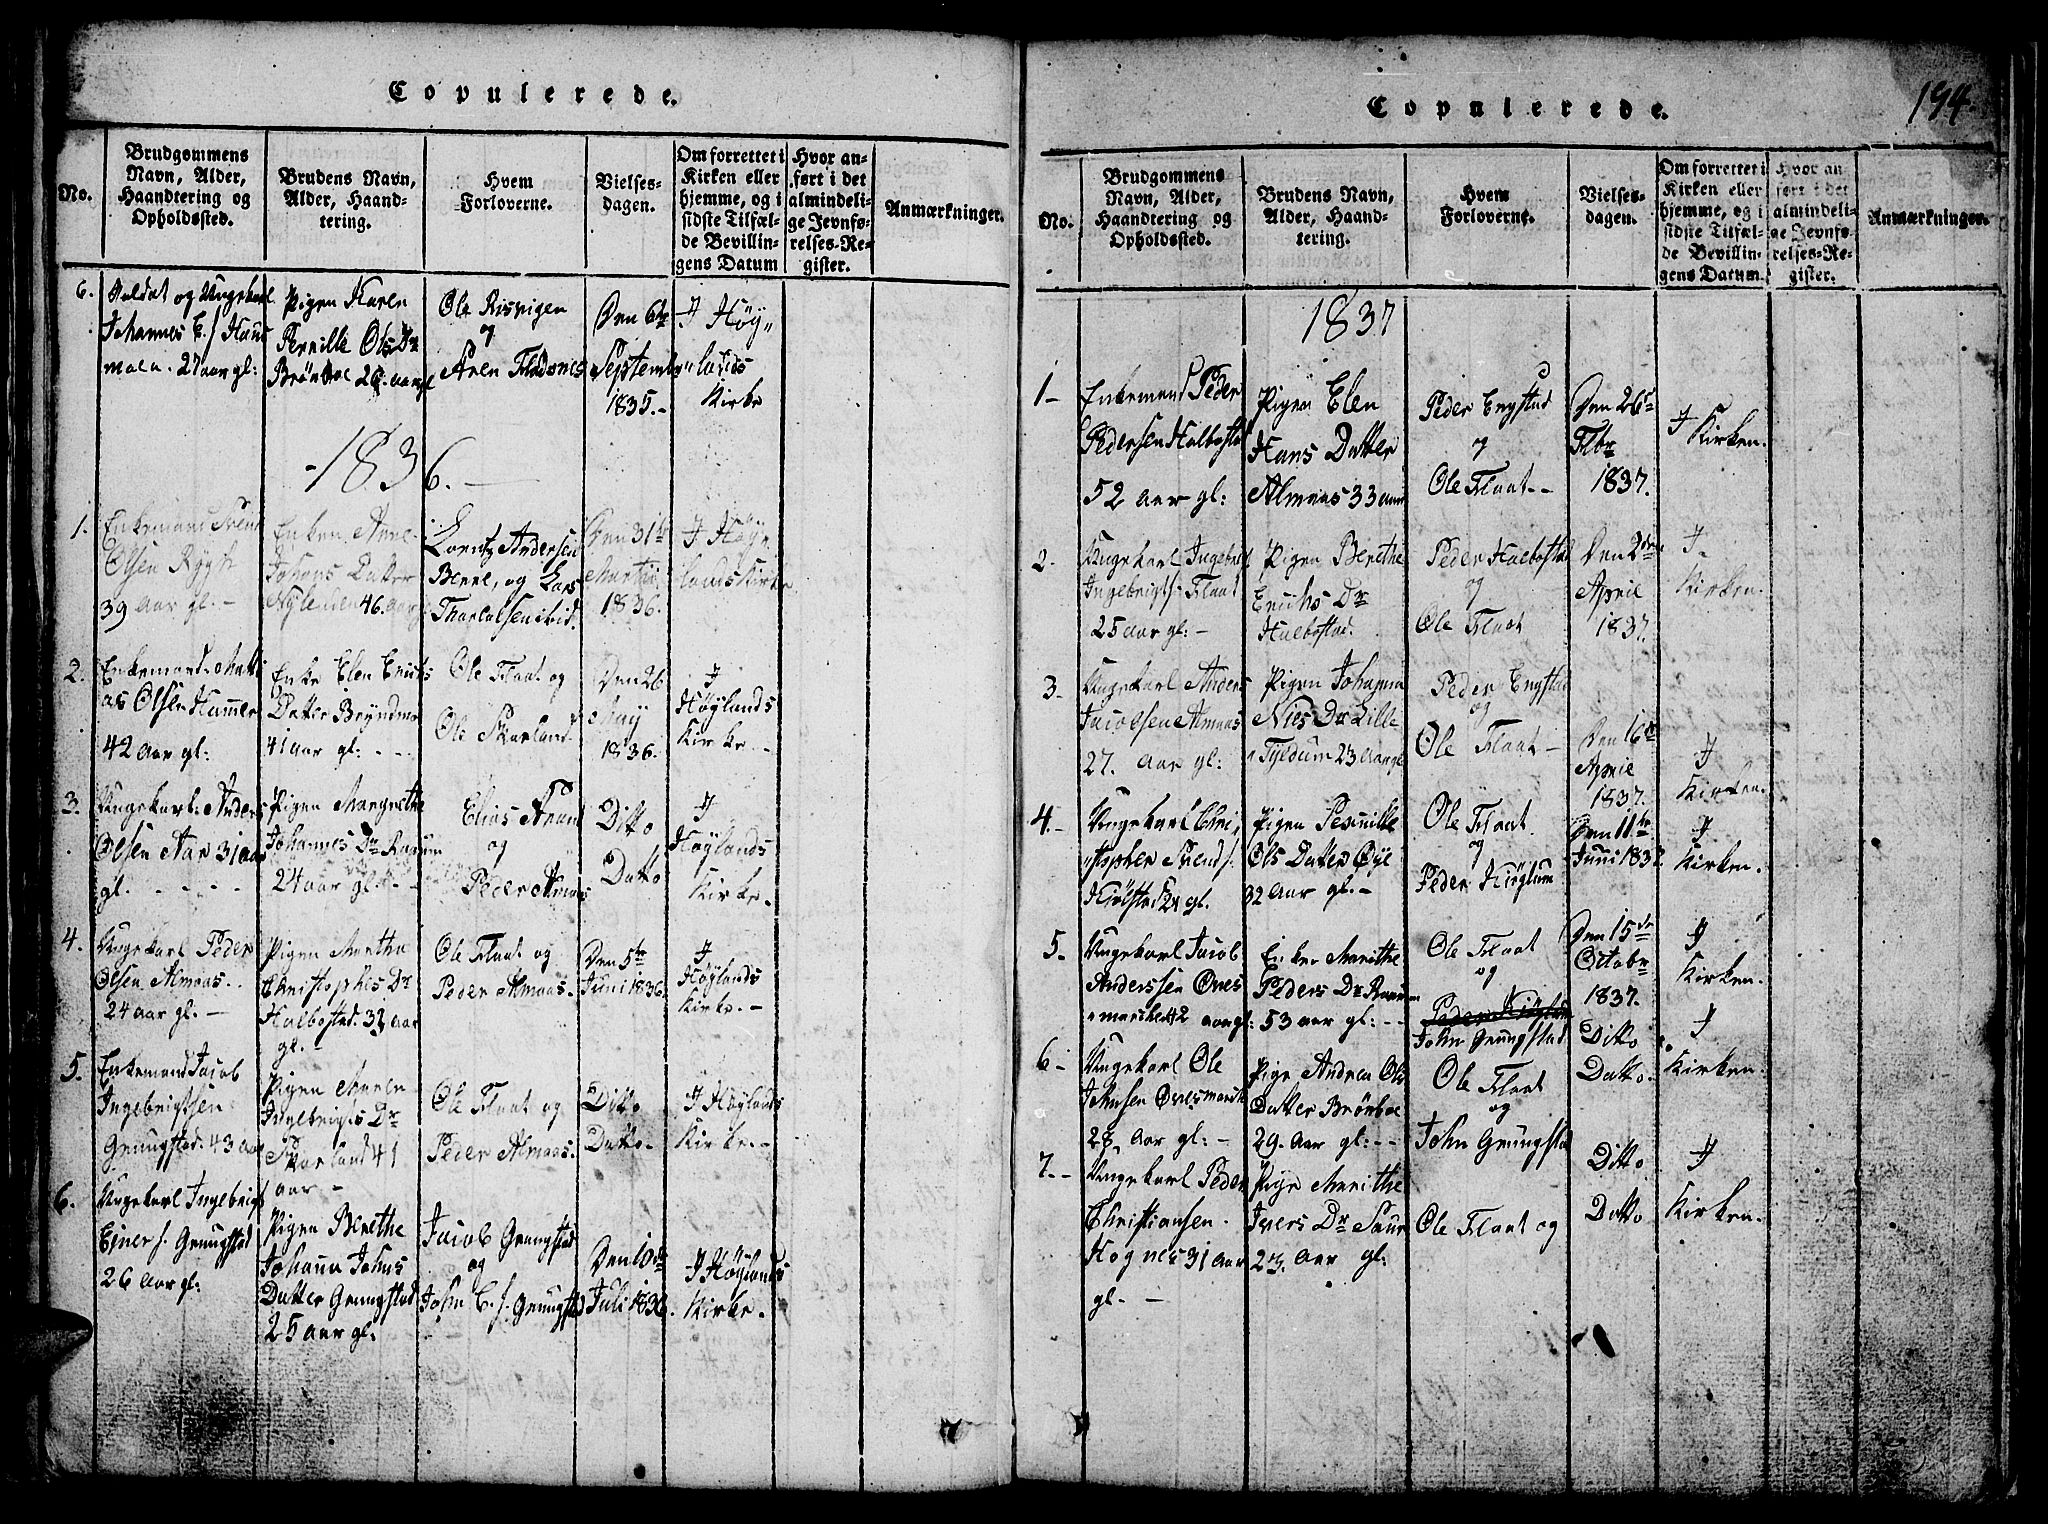 Copulerede.
No.
Brudgommens
Navn, Alder,
Haandtering og
Opholdssted.
Brudens Navn,
Alder, Haand-
tering.
Hvem
Forloverne.
Vielses-
dagen.
Om forrettet i
Kirken eller
hjemme, og i
sidste Tilfæl-
de Bevillin-
gens Datum
Hvor an-
ført i det
almindeli-
ge Jevnfø-
relses-Re-
gister.
Anmærkninger.
6.
Soldat og Ungekarl
Johannes E.
27 aar gl:
Pigen Karen
Pernille Ols Dr
Brönboe 26 aar gl
Ole Risvigen
Aren Fladsnes
Den 6te
September
1835.-
I Høy,,
,,lands
Kirke
-1836.-
1.
Enkemand Svend
Olsen Rygh
39 aar gl. -
Enken Anne
Johans Datter
Nylenden 46. aar
Lorentz Andersen
Berre, og Lars
Tharalsen ibid.
Den 31te
Martii
1836.
I Høy,,
lands Kirke
2.
Enkemand Matti
as Olsen Hammer
42 aar gl:
Enke Elen Erichs
Datter Bryndmo
41 aar gl: - - -
Ole Flaat og
Ole Skarland
Den 26
May
1836.
I
Høylands
Kirke.-
3.
Ungekarl Anders
Olsen Aar 31 aar
gl. - - -
Pigen Margrethe
Johannes Dr Raaum
24 aar gl. -
Elias Aran
og
Peder Almaas
Ditto
Datto
I
Høylands
Kirke.
4.
Ungekarl Peder
Olsen Almaas..
24 aar gl. -
Pigen Martha
Christophers Dr
Halbostad. 32 aar
gl. -
Ole Flaat og
Peder Almaas.
Den 5te
Juni 1836.
I
Høylands
Kirke. -
5.
Enkemand Jacob
Ingebrigtsen
Grungstad. 43 aar
Pigen Maren
Ingebrigts Dr
Skarland 41
aar -
Ole Flaat og
Peder Almaas.
Ditto
Datto.
I Høylands
Kirke.-
6.
Ungekarl Ingebrigt
Ejner s. Grungstad
26 aar gl:
Pigen Berethe
Johann Johns
Datter Grungstad
25 aar gl.
Jacob Grungstad
og
John E. s. Grungstad
Den 10de
Juli 1836.
I Høylands
Kirke.
Copulerede.
194.
No.
Brudgommens
Navn, Alder,
Haandtering og
Opholdssted.
Brudens Navn,
Alder, Haand-
tering.
Hvem
Forloverne.
Vielses-
dagen.
Om forrettet i
Kirken eller
hjemme, og i
sidste Tilfæl-
de Bevillin-
gens Datum.
Hvor an
ført i det
almindeli-
ge Jevnfø-
relses-Re-
gister.
Anmærkninger.
1837
1-
Enkemand Peder
Pedersen Halbostad
52 aar gl:
Pigen Elen
Hans Datter
Almaas 33 aar
Peder Engstad
og
Ole Flaat--
Den 26de
Fbr
1837.
I
Kirken.
2.
Ungekarl Ingebrigt
Ingebrigts. Flaat
25 aar gl: -
Pigen Berethe
Erichs Dr
Halbostad.
Peder Halbostad
og
Ole Flaat
Den 2den
April
1837.
I.
Kirken.
3.
Ungekarl Anders
Jacobsen Almaas
27. aar gl:
Pigen Johanna
Niels Dr Lille
Tyldum 23 aar gl
Peder Engstad
og
Ole Flaat -
Den 16de
April
1837.
I
Kirken.
4.-
Ungekarl Chri,
,,stopher Svends.
gl.
Pigen Pernille
Ols Datter Øye
32 aar gl. -
Ole Flaat
og
Peder Kiøglum
Den 11te
Juni 1837.
I
Kirken.
5.
Ungekarl Jacob
Anderssen Øves
marchen 42 aar gl:
Enken Marithe
Peders Dr Raaum
53 aar gl: - -
Ole Flaat
og
Peder Kiøglum
John Grungstad
Den 15de
Octobr
1837.
I
Kirken.
6-
Ungekarl Ole
Johnsen Øvesmarch
28. aar gl: -
Pige Andrea Ols
Datter Brönboe
29. aar gl: - -
Ole Flaat
og
John Grungstad
Ditto
Datto.
I
Kirken.
7.-
Ungekarl Peder
Christiansen.
Hognes 31 aar
gl. -
Pige Marithe
Ivers Dr Saur
23. aar gl:
Ole Flaat og
Ditto
Datto
I
Kirken.